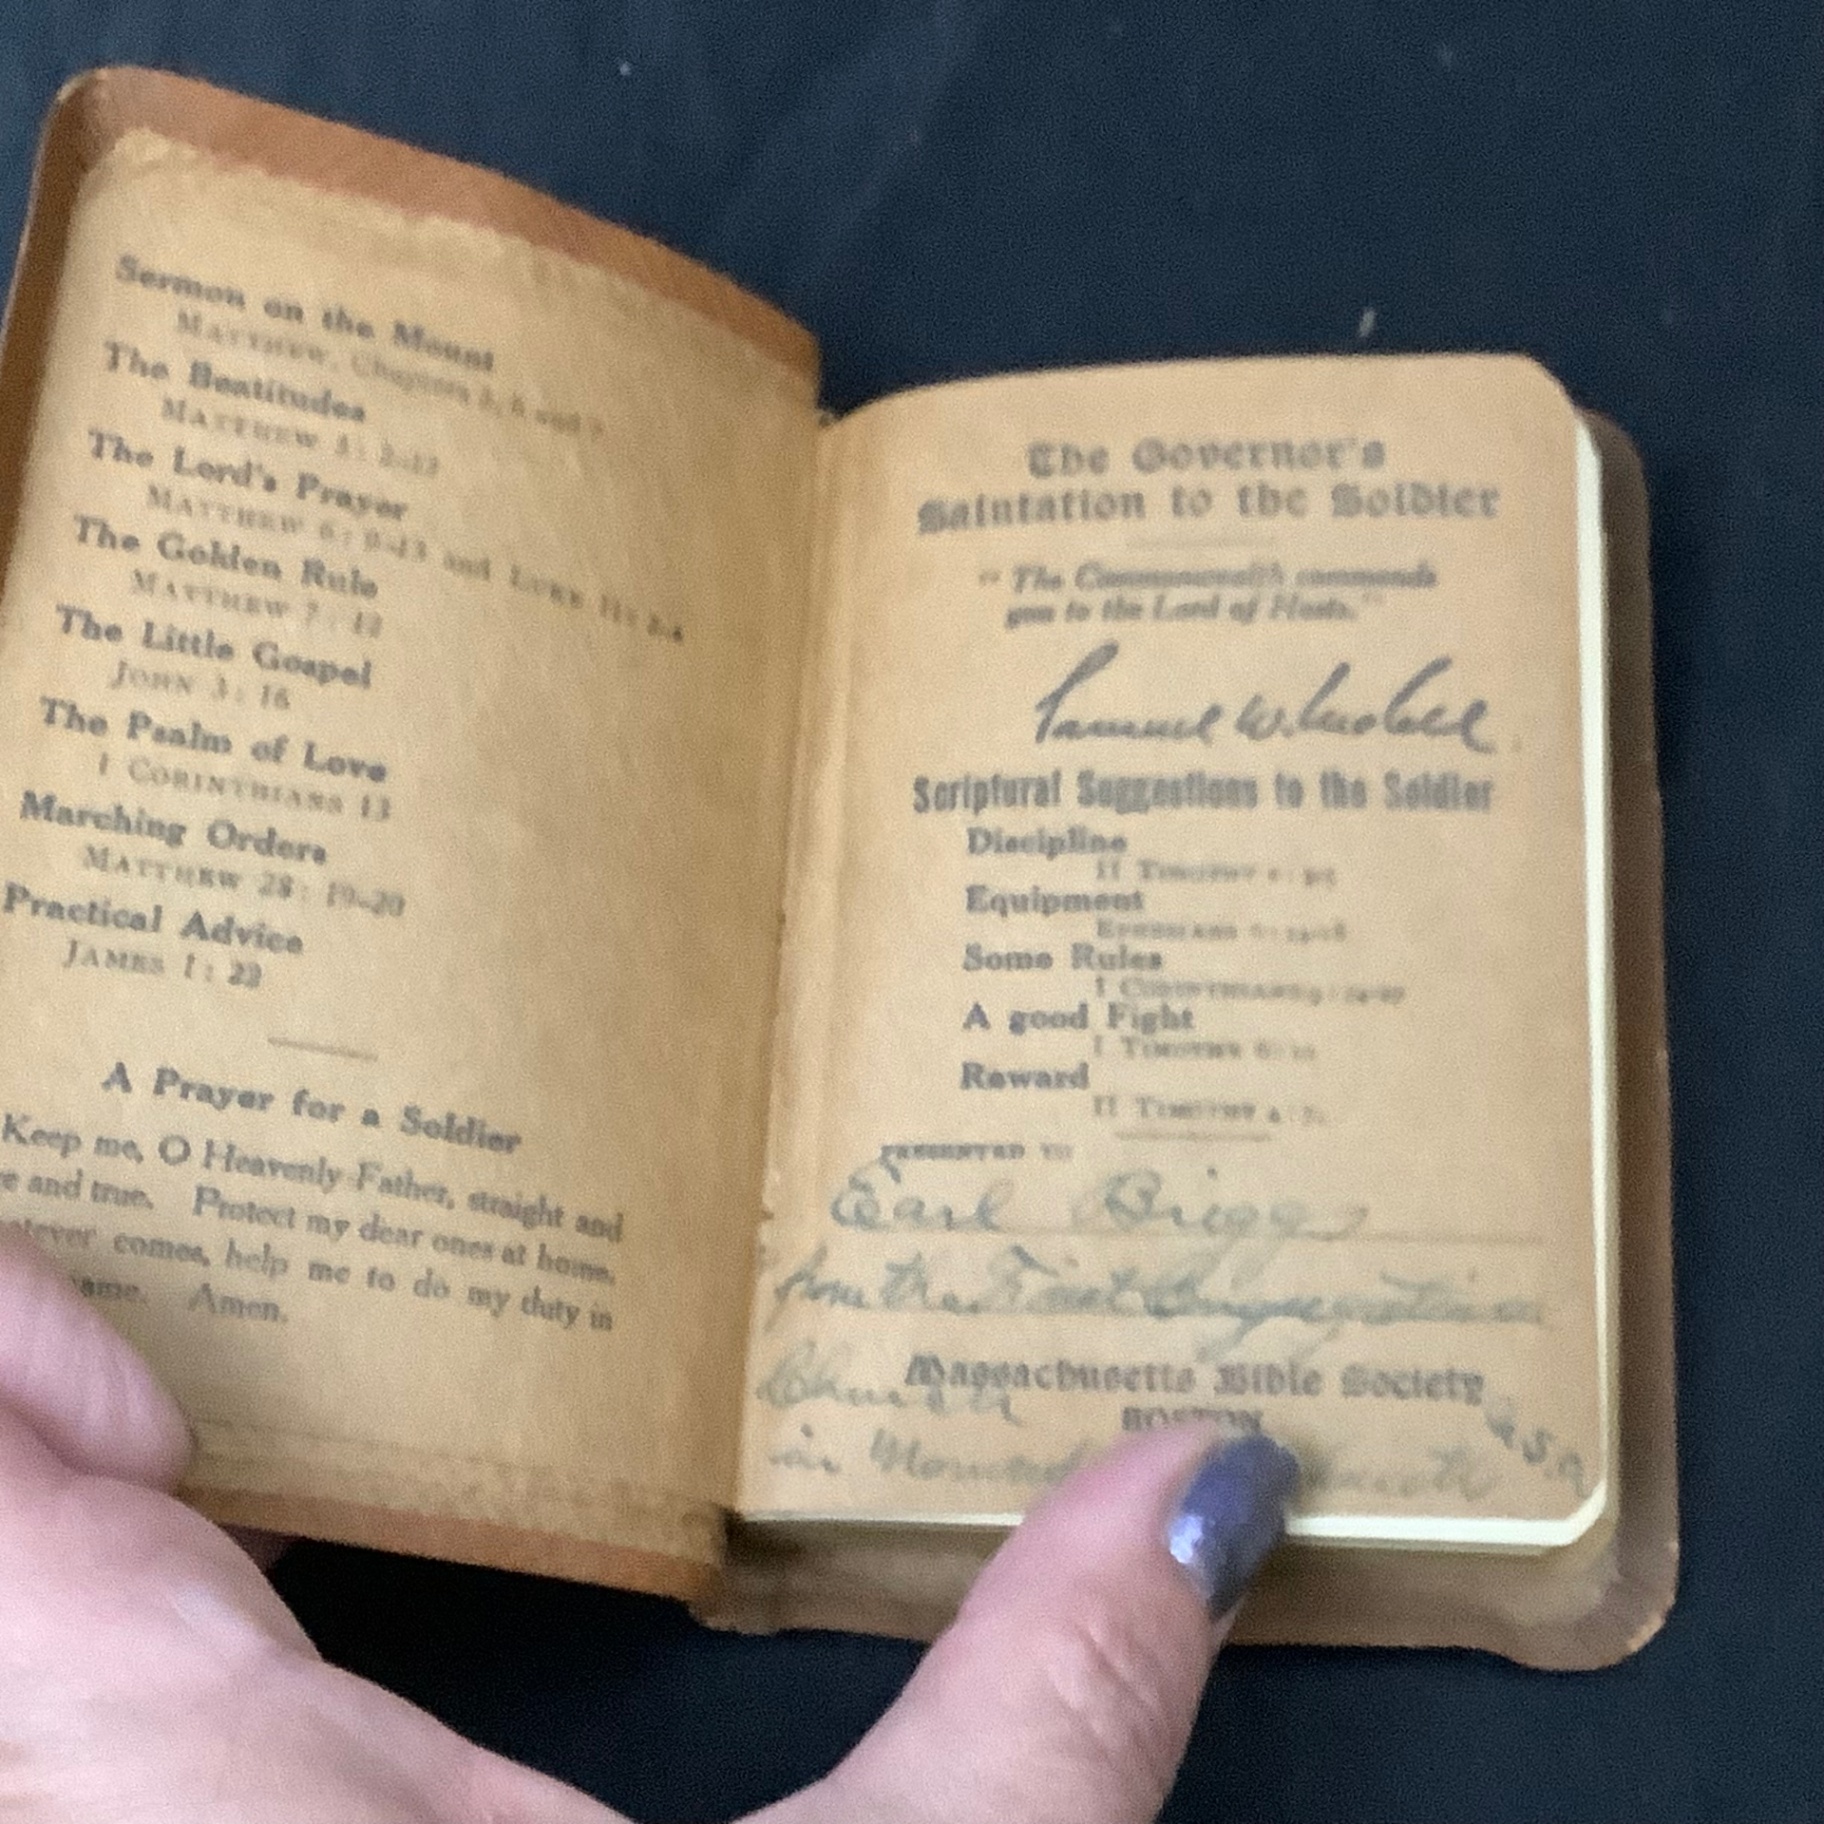 Sermon on the Mount
MATTHEW, Chapters 5, 6 and 7
The Beatitudes
MATTHEW 5: 3-12
The Lord's Prayer
MATTHEW 6: 9-13 and LUKE 11: 2-4
The Golden Rule
MATTHEW 7: 12
The Little Gospel
JOHN 3: 16
The Psalm of Love
I CORINTHIANS 13
Marching Orders
MATTHEW 28: 19-20
Practical Advice
JAMES 1: 22
A Prayer for a Soldier
Keep me, O Heavenly Father, straight and
and true. Protect my dear ones at home.
comes, help me to do my duty in
Amen.
The Governor's
Salutation to the Soldier
"The Commonwealth commends
you to the Lord of Hosts."
Samuel W. McCall
Scriptural Suggestions to the Soldier
Discipline
II TIMOTHY
Equipment
EPHESIANS
Some Rules
I CORINTHIANS
A good Fight
I TIMOTHY
Reward
II TIMOTHY
PRESENTED TO
Earl Briggs
from the First Congregational
Church
Massachusetts Bible Society
BOSTON
in